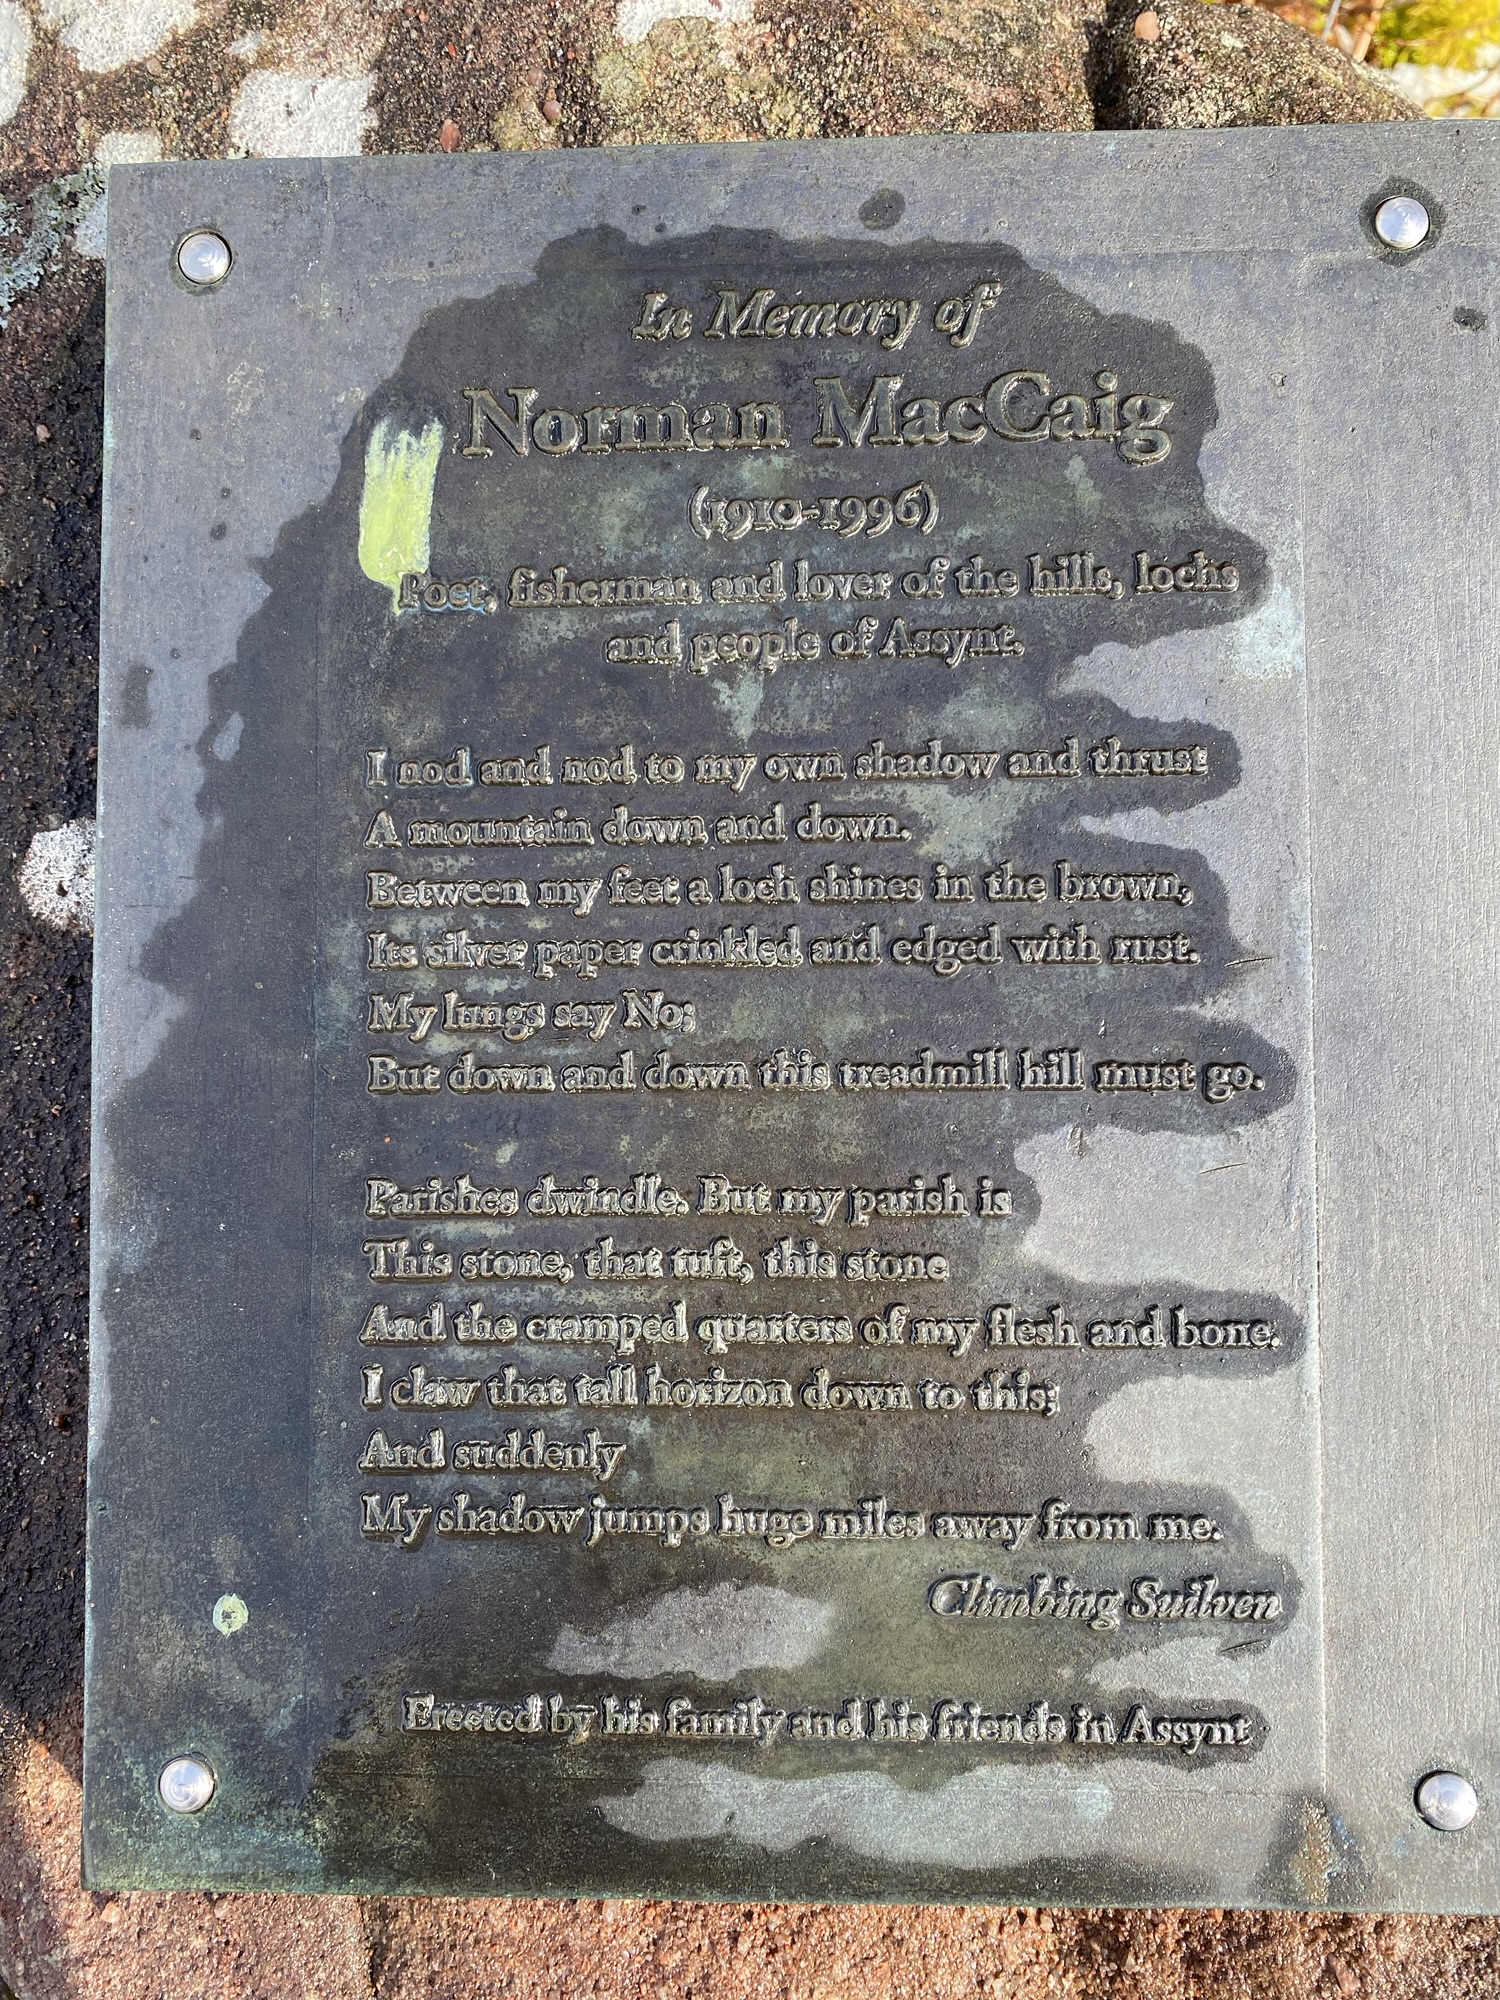 In Memory of
Norman MacCaig
(1910-1996)
Poet, fisherman and lover of the hills, lochs
and people of Assynt.
I nod and nod to my own shadow and thrust
A mountain down and down.
Between my feet a loch shines in the brown,
Its silver paper crinkled and edged with rust.
My lungs say No;
But down and down this treadmill hill must go.
Parishes dwindle. But my parish is
This stone, that tuft, this stone
And the cramped quarters of my flesh and bone.
I claw that tall horizon down to this;
And suddenly
My shadow jumps huge miles away from me.
Climbing Suilven
Erected by his family and his friends in Assynt